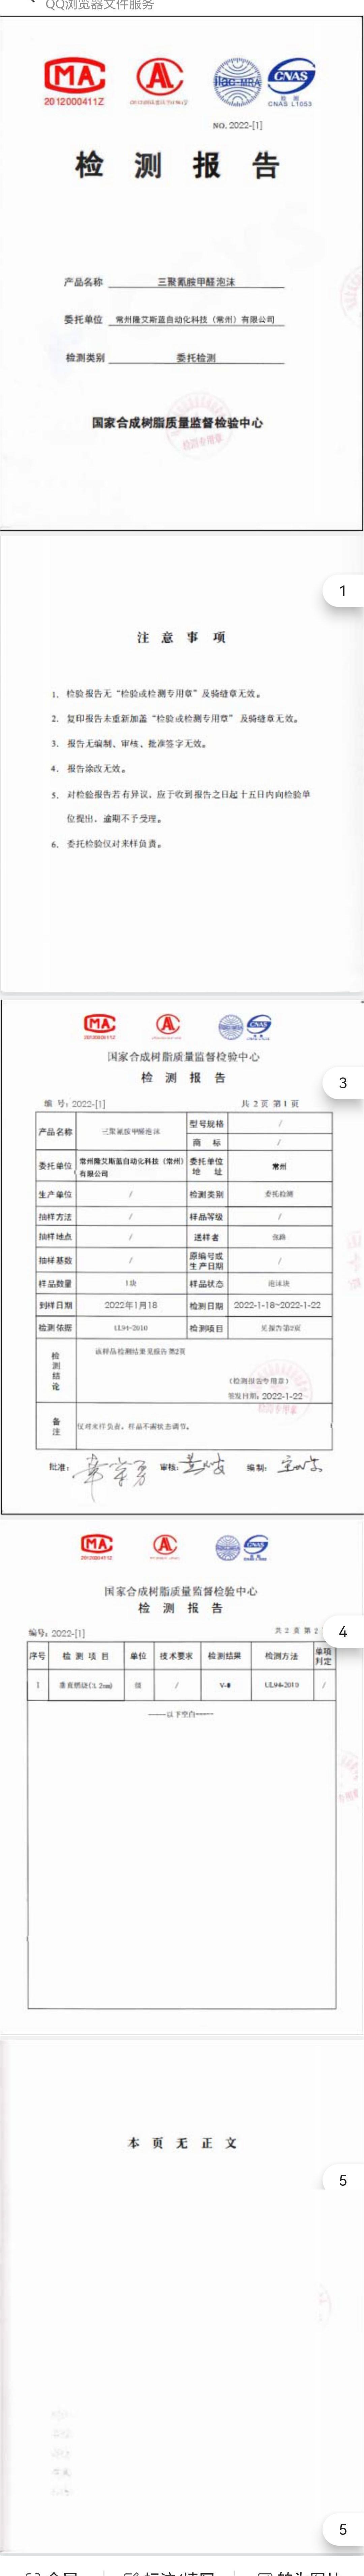 QQ浏览器文件服务
MA
2012000411Z
AL
ilac-MRA
CNAS
检测
CNAS L1053
NO. 2022-[1]
检 测 报 告
产品名称 三聚氰胺甲醛泡沫
委托单位 常州隆艾斯蓝自动化科技（常州）有限公司
检测类别 委托检测
国家合成树脂质量监督检验中心
检测专用章
1
注 意 事 项
1. 检验报告无“检验或检测专用章”及骑缝章无效。
2. 复印报告未重新加盖“检验或检测专用章”及骑缝章无效。
3. 报告无编制、审核、批准签字无效。
4. 报告涂改无效。
5. 对检验报告若有异议，应于收到报告之日起十五日内向检验单
位提出，逾期不予受理。
6. 委托检验仅对来样负责。
MA
CNAS
3
国家合成树脂质量监督检验中心
检 测 报 告
编 号：2022-[1] 共 2 页 第 1 页
产品名称 三聚氰胺甲醛泡沫 型号规格 /
商 标 /
委托单位 常州隆艾斯蓝自动化科技（常州）有限公司 委托单位地 址 常州
生产单位 / 检测类别 委托检测
抽样方法 / 样品等级 /
抽样地点 / 送样者
抽样基数 / 原编号或生产日期 /
样品数量 1块 样品状态 泡沫块
到样日期 2022年1月18 检测日期 2022-1-18~2022-1-22
检测依据 UL94-2010 检测项目 见报告第2页
检测结论 该样品检测结果见报告第2页
（检测报告专用章）
签发日期：2022-1-22
备注 仅对来样负责。样品不需状态调节。
批准： 审核： 编制：
MA
CNAS
4
国家合成树脂质量监督检验中心
检 测 报 告
编号：2022-[1] 共 2 页 第 2
序号 检 测 项 目 单位 技术要求 检测结果 检测方法 单项判定
1 垂直燃烧(3.2mm) 级 / V-0 UL94-2010 /
-----以下空白-----
本 页 无 正 文
5
5